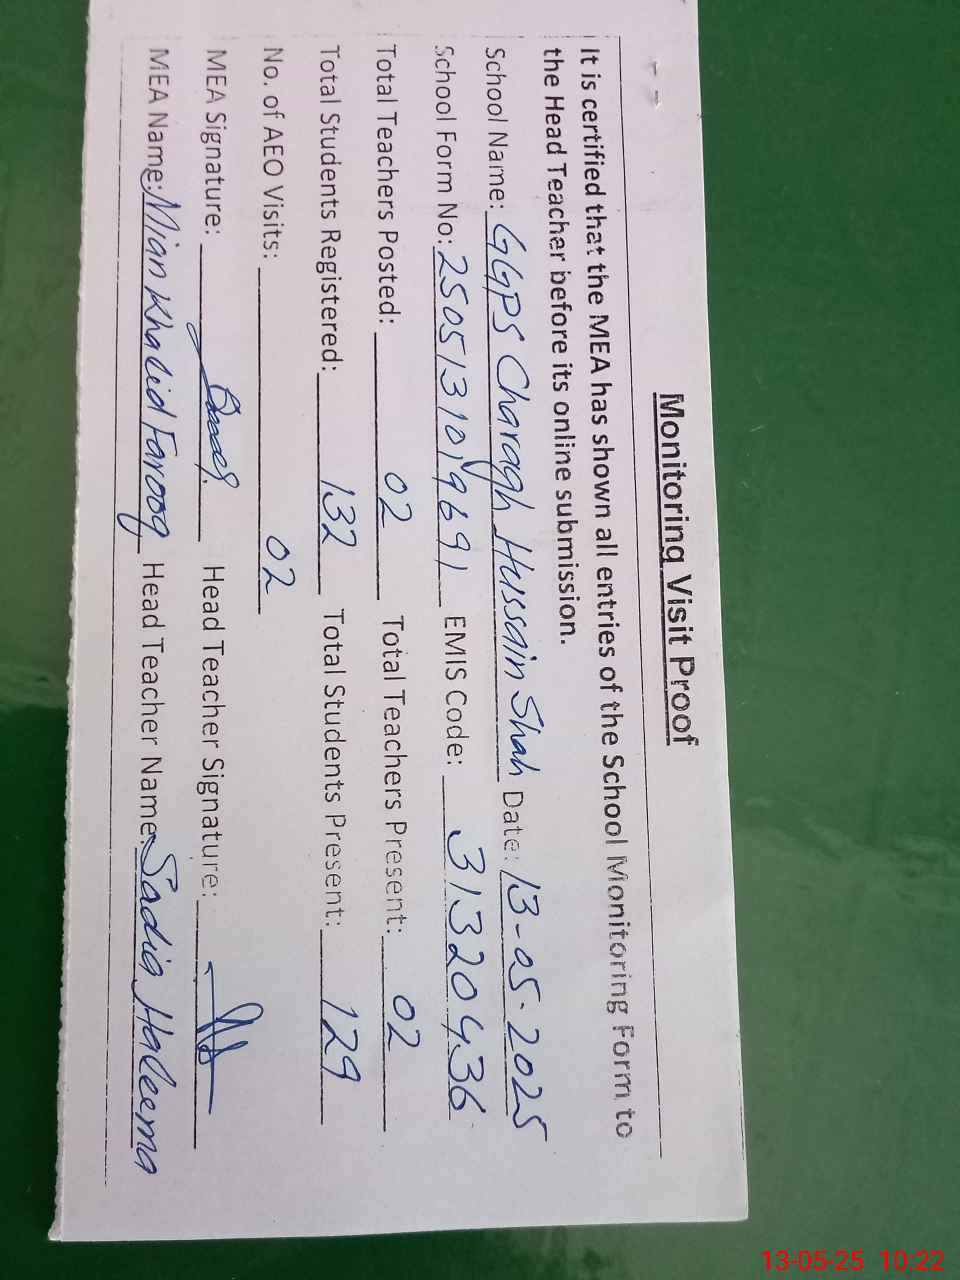 Monitoring Visit Proof
It is certified that the MEA has shown all entries of the School Monitoring Form to
the Head Teacher before its online submission.
School Name: GGPS Charagh Hussain Shah Date: 13-05-2025
School Form No: 2505131019691 EMIS Code: 31320436
Total Teachers Posted: 02 Total Teachers Present: 02
Total Students Registered: 132 Total Students Present: 129
No. of AEO Visits: 02
MEA Signature: Head Teacher Signature:
MEA Name: Mian Khalid Farooq Head Teacher Name: Sadia Haleema
13-05-25 10:22